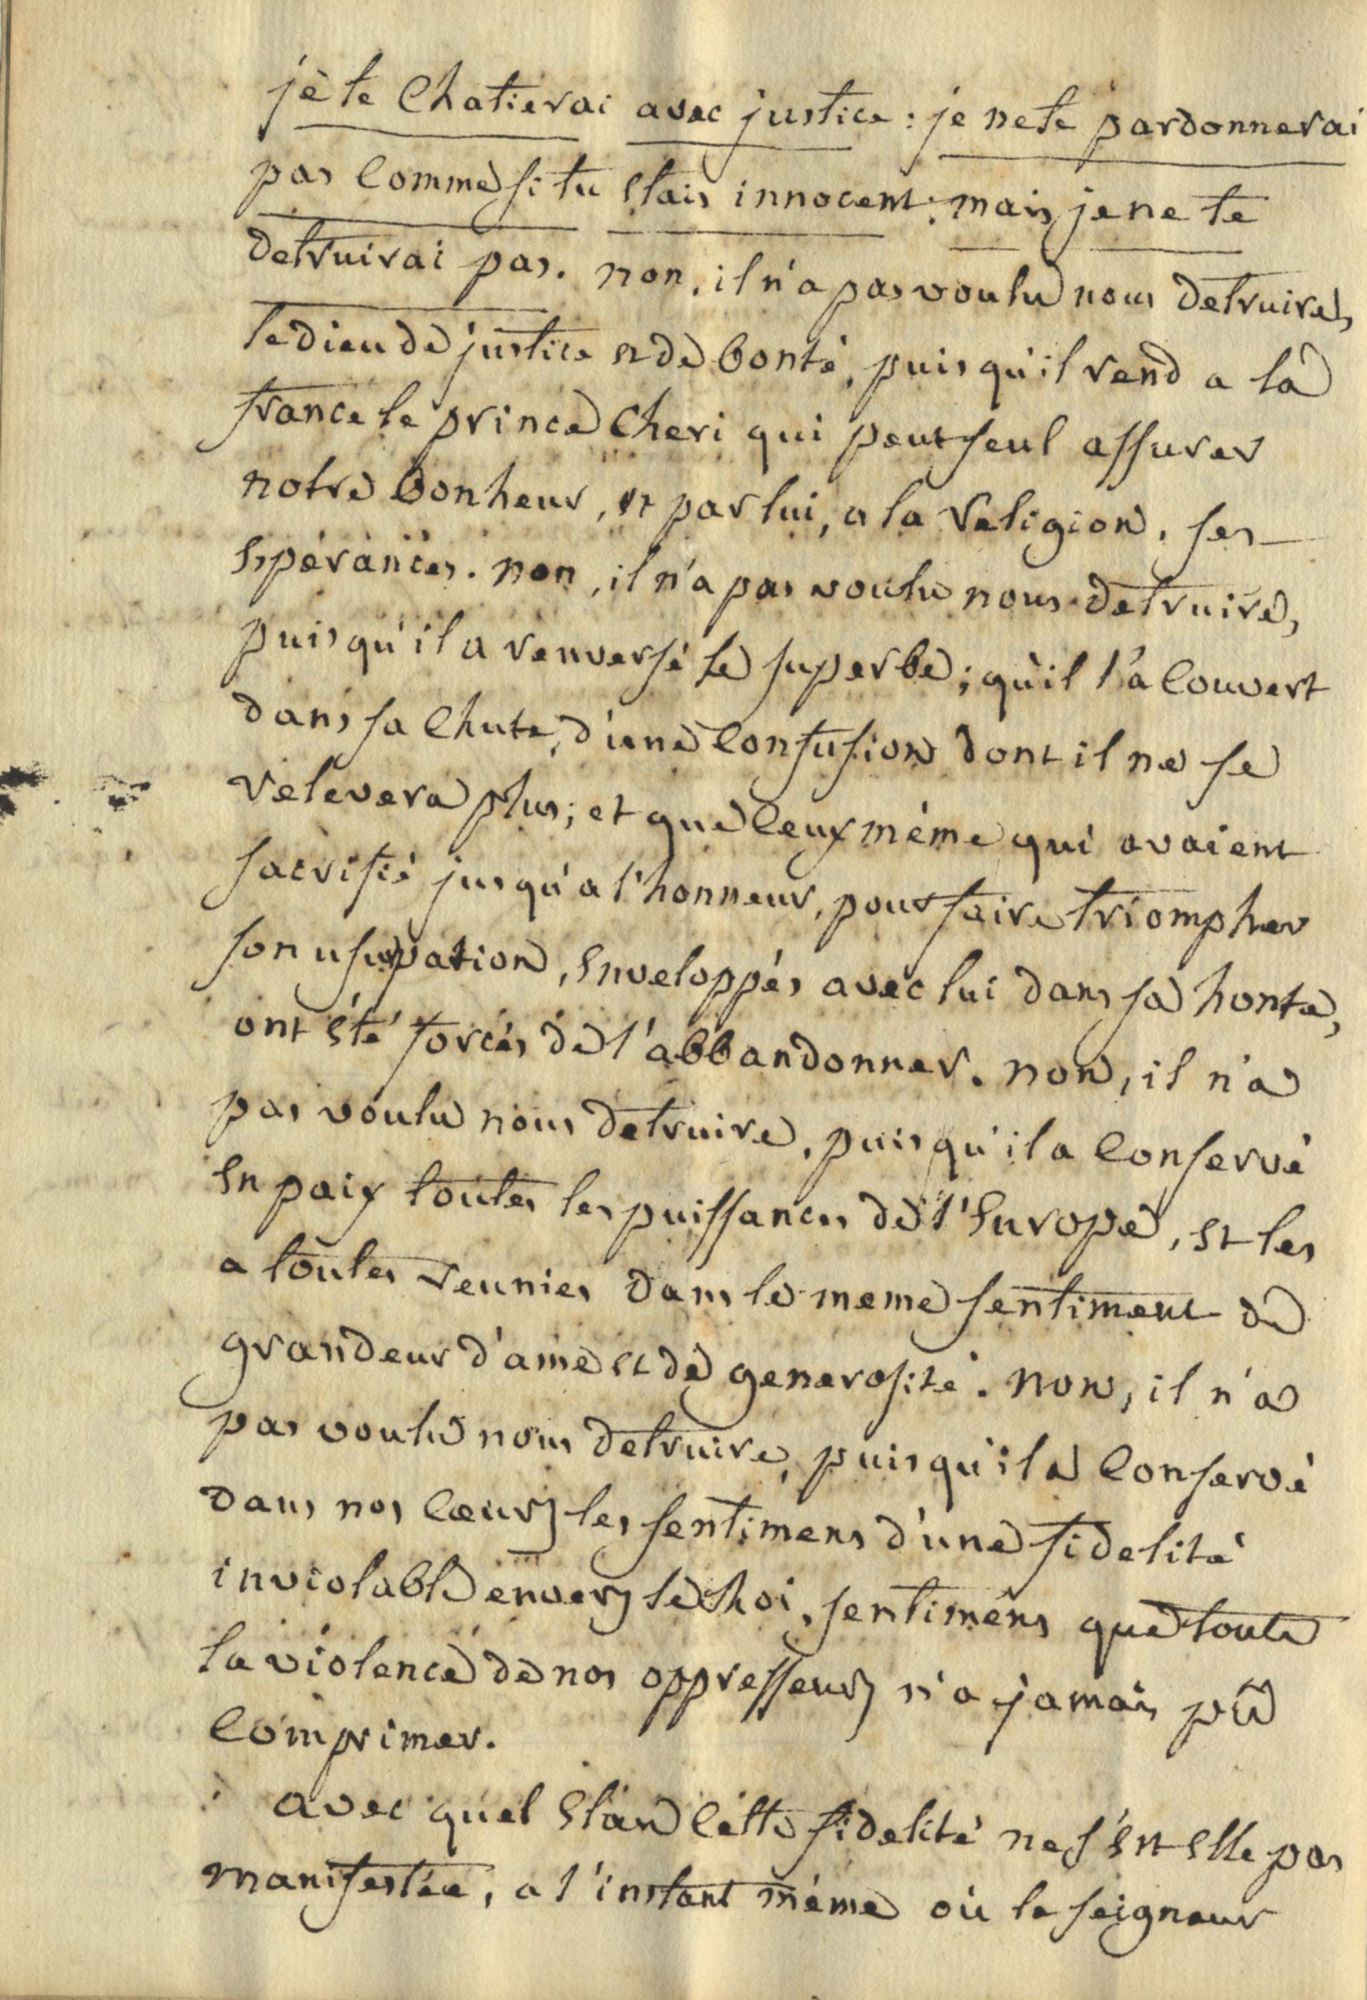 je te chatierai avec justice : je ne te pardonnerai
pas comme si tu etais innocent : mais je ne te
detruirai pas. non, il n'a pas voulu nous detruire,
le dieu de justice et de bonté, puisqu'il rend a la
france le prince cheri qui peut seul assurer
notre bonheur, et par lui, a la religion, ses
espérances. non, il n'a pas voulu nous detruire,
puisqu'il a renversé le superbe ; qu'il l'a couvert
dans sa chute, d'une confusion dont il ne se
relevera plus ; et que ceux même qui avaient
sacrifié jusqu'a l'honneur, pour faire triompher
son usurpation, enveloppés avec lui dans sa honte,
ont été forcés de l'abbandonner. non, il n'a
pas voulu nous detruire, puisqu'il a conservé
en paix toutes les puissances de l'Europe, et les
a toutes reunies dans le meme sentiment de
grandeur d'ame et de generosité. non, il n'a
pas voulu nous detruire, puisqu'il a conservé
dans nos cœurs les sentimens d'une fidelité
inviolable envers le Roi, sentimens que toute
la violence de nos oppresseurs n'a jamais pû
comprimer.
avec quel elan cette fidelité ne s'est elle pas
manifestée, a l'instant même où le seigneur